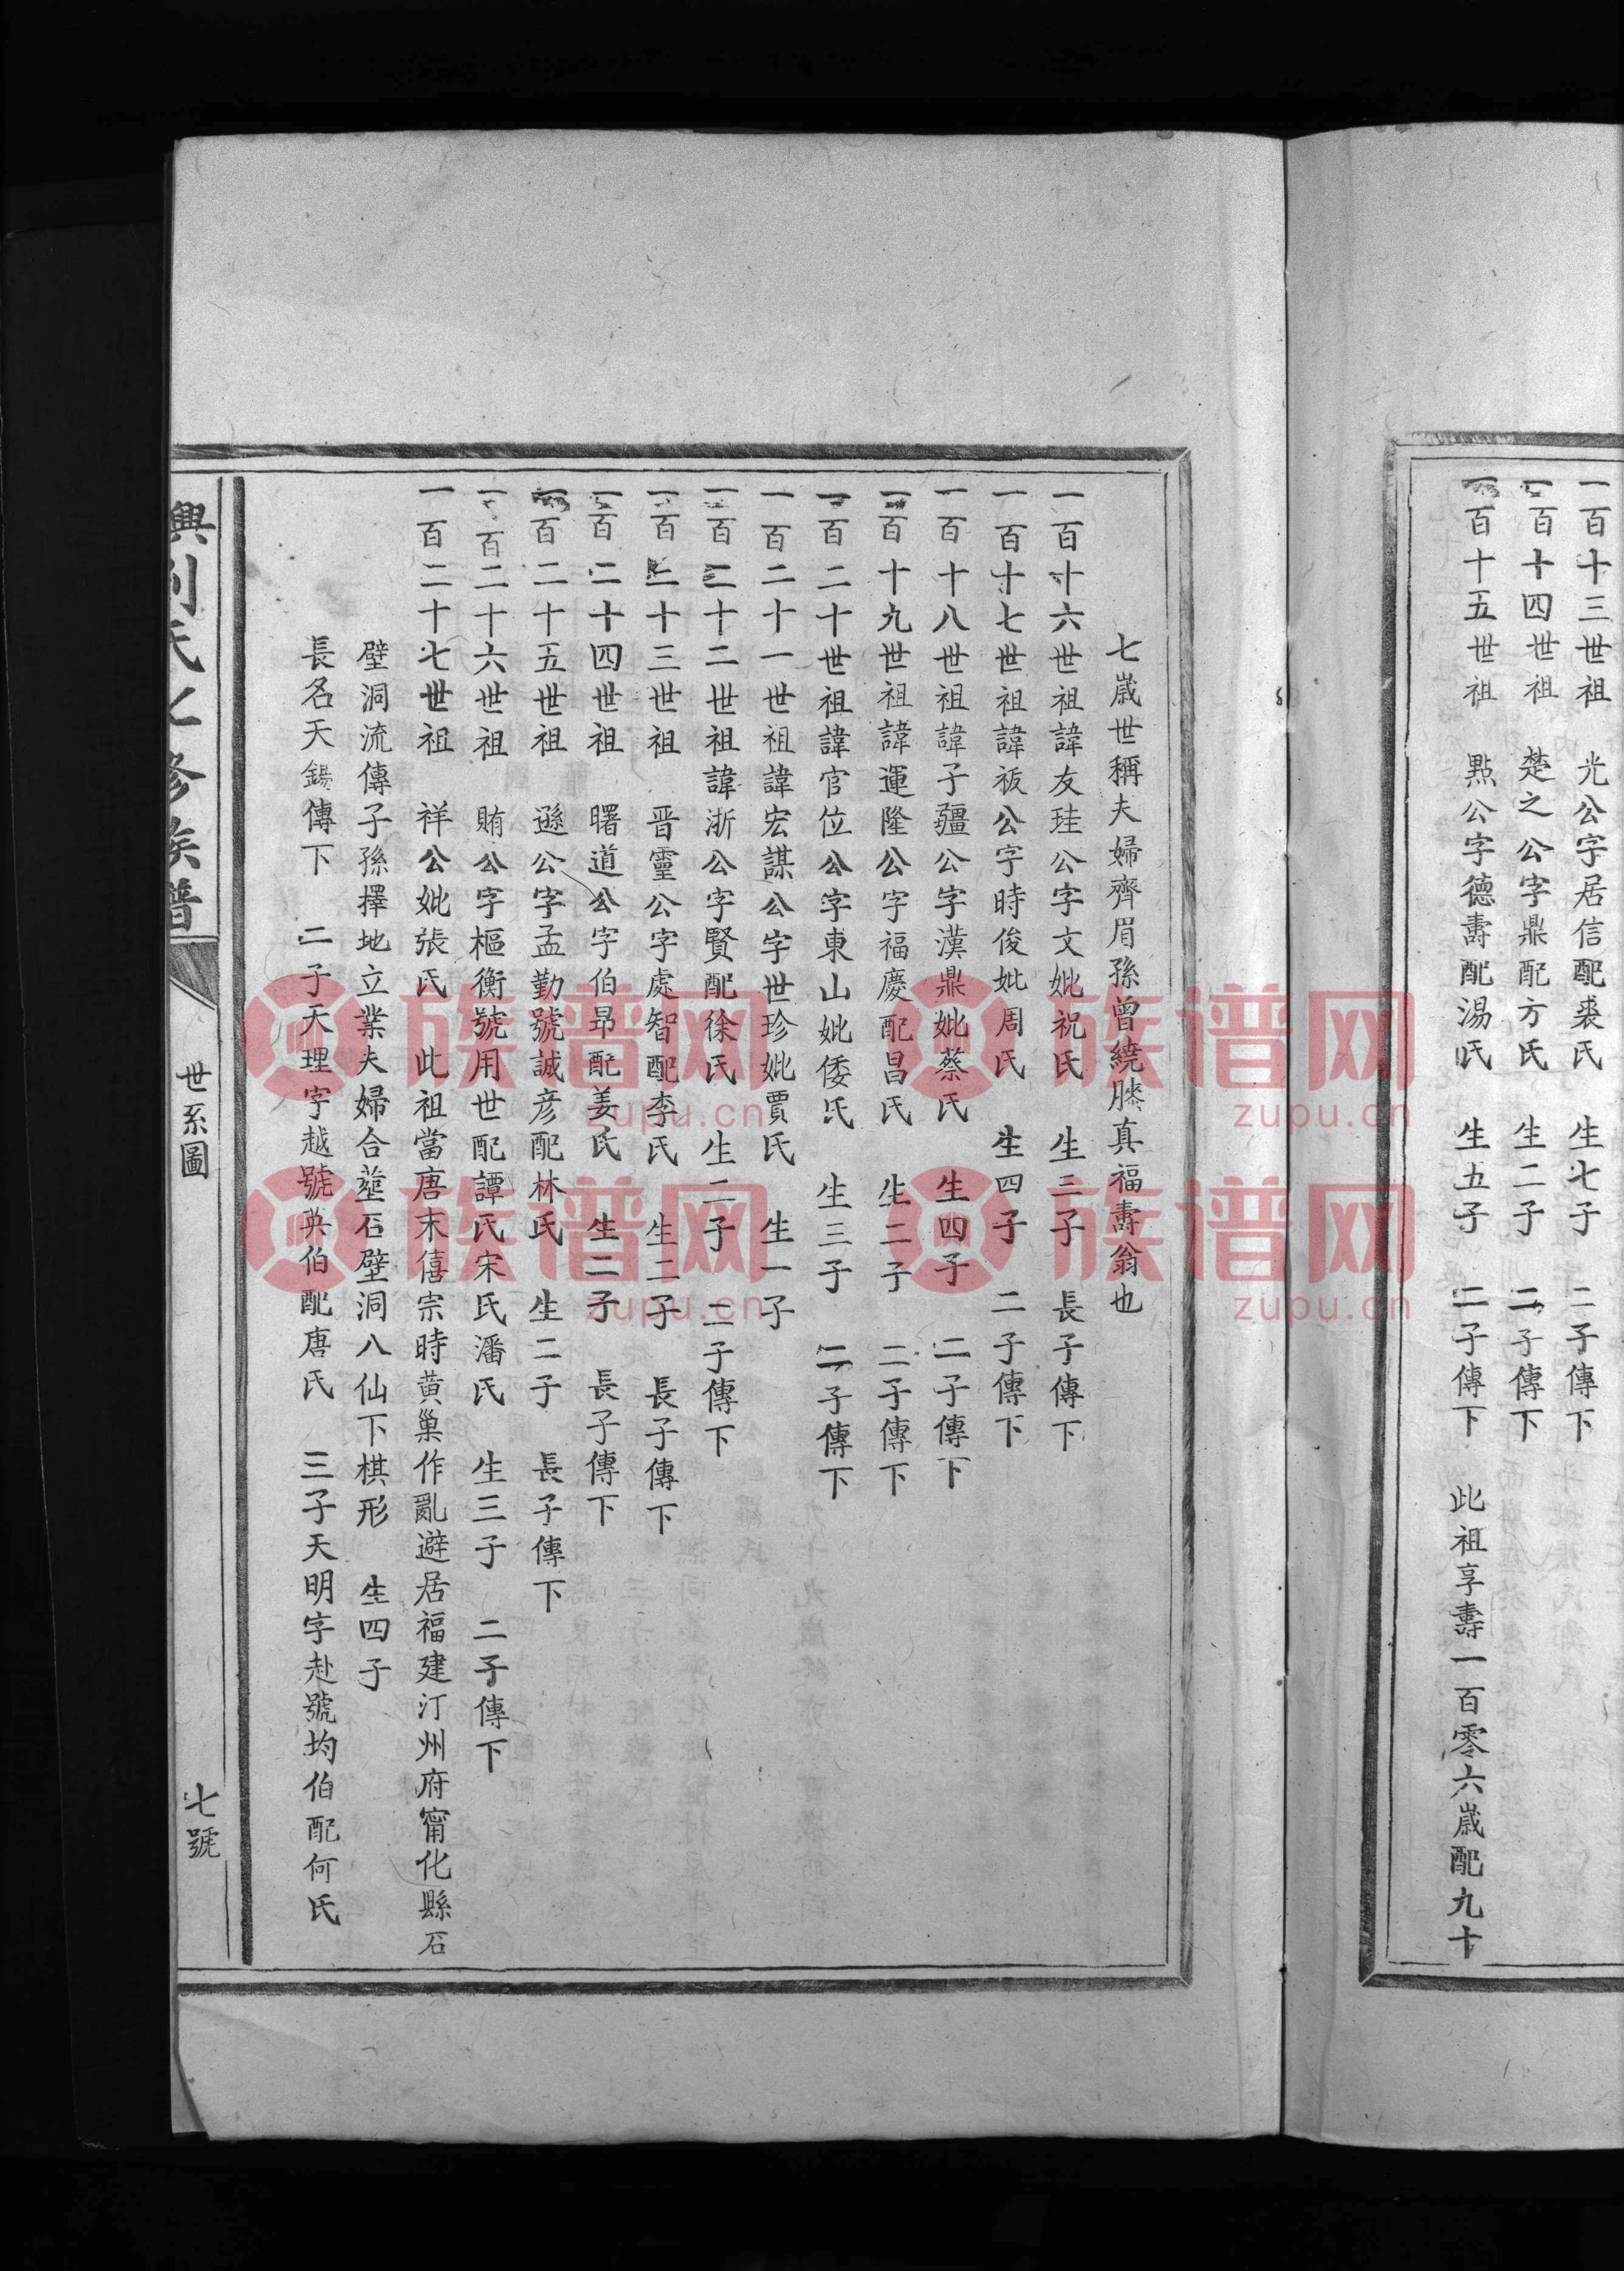 一百十三世祖　光公字居信配裘氏　生七子　二子傳下
一百十四世祖　楚之公字鼎配方氏　生二子　二子傳下
一百十五世祖　點公字德壽配湯氏　生五子　二子傳下　此祖享壽一百零六歲配九十
七歲世稱夫婦齊眉孫曾繞膝真福壽翁也
一百十六世祖諱友珪公字文妣祝氏　生三子　長子傳下
一百十七世祖諱祓公字時俊妣周氏　生四子　二子傳下
一百十八世祖諱子疆公字漢鼎妣蔡氏　生四子　二子傳下
一百十九世祖諱運隆公字福慶配昌氏　生二子　二子傳下
一百二十世祖諱官位公字東山妣倭氏　生三子　二子傳下
一百二十一世祖諱宏謀公字世珍妣賈氏　生一子
一百二十二世祖諱浙公字賢配徐氏　生二子　二子傳下
一百二十三世祖　晋靈公字處智配李氏　生二子　長子傳下
一百二十四世祖　曙道公字伯昂配姜氏　生二子　長子傳下
一百二十五世祖　遜公字孟勤號誠彦配林氏　生二子　長子傳下
一百二十六世祖　賄公字樞衡號用世配譚氏宋氏潘氏　生三子　二子傳下
一百二十七世祖　祥公妣張氏　此祖當唐末僖宗時黄巢作亂避居福建汀州府甯化縣石
壁洞流傳子孫擇地立業夫婦合塟石壁洞八仙下棋形　生四子
長名天錫傳下　二子天理字越號英伯配唐氏　三子天明字赴號均伯配何氏
興刘氏七修族譜
世系圖
七號
族谱网
zupu.cn
族谱网
zupu.cn
族谱网
zupu.cn
族谱网
zupu.cn